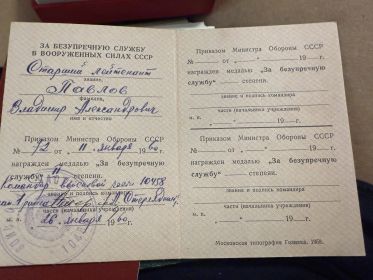 ЗА БЕЗУПРЕЧНУЮ СЛУЖБУ
В ВООРУЖЕННЫХ СИЛАХ СССР
Старший лейтенант
звание,
Павлов
фамилия,
Владимир Александрович
имя и отчество
Приказом Министра Обороны СССР
№ 72 от „ 11 “ января 1960 г.
награжден медалью „За безупречную
службу“ II степени.
Командир войсковой части 10458
звание и подпись командира
части (начальника учреждения)
м. п. „26“ января 1960 г.
Приказом Министра Обороны СССР
№ от „ “ 19 г.
награжден медалью „За безупречную
службу“ степени.
звание и подпись командира
части (начальника учреждения)
м. п. „ “ 19 г.
Приказом Министра Обороны СССР
№ от „ “ 19 г.
награжден медалью „За безупречную
службу“ степени.
звание и подпись командира
части (начальника учреждения)
м. п. „ “ 19 г.
Московская типография Гознака. 1958.